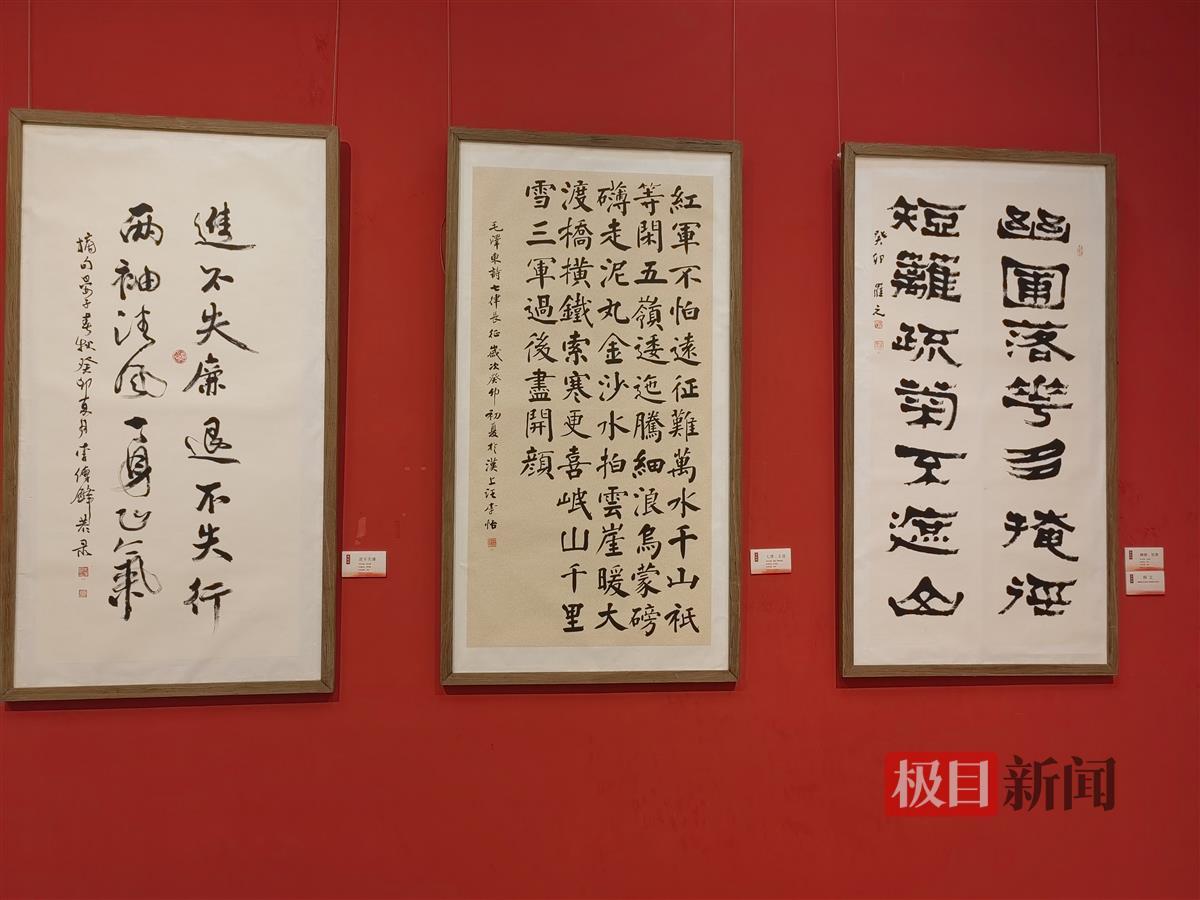 進不失廉退不失行
两袖清风一身正气
摘句晏子春秋癸卯
紅軍不怕遠征難萬水千山祇
等閑五嶺逶迤騰細浪烏蒙磅
礴走泥丸金沙水拍雲崖暖大
渡橋橫鐵索寒更喜岷山千里
雪三軍過後盡開顔
毛澤東詩七律長征 歲次癸卯初夏於漢上汪李怡
幽圃落花多掩徑
短籬疏菊不遮山
癸卯
极目新闻